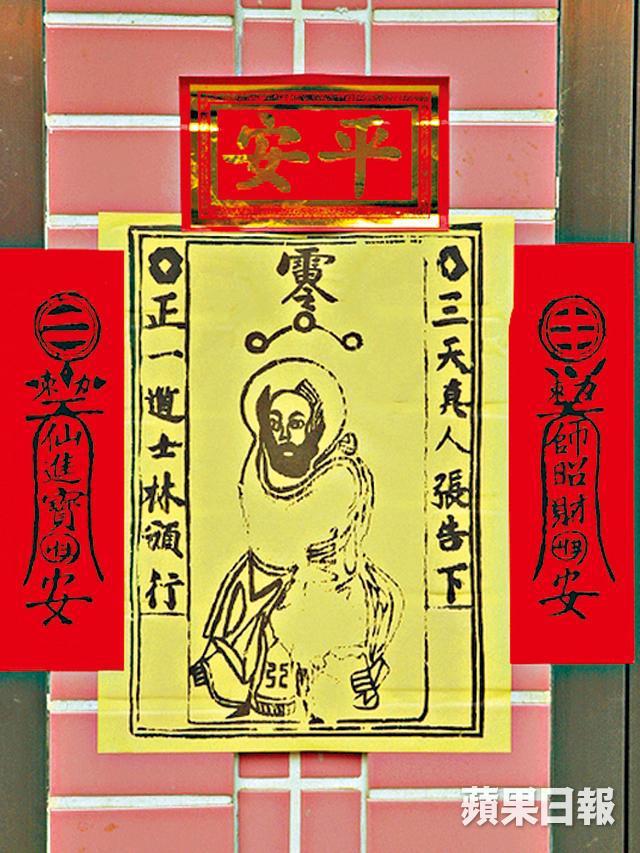 平安
三天真人張告下
正一道士林頒行
師昭財
安
仙進寶
安
蘋果日報